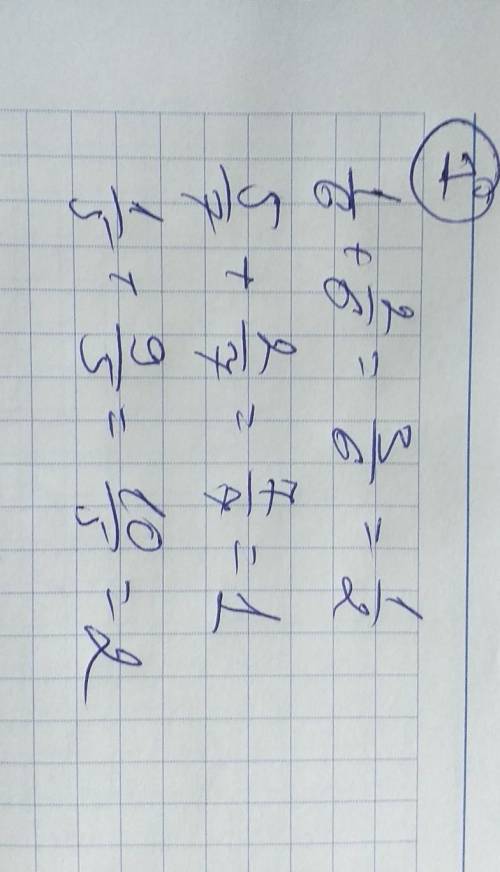 1⁰
1/6 + 2/6 = 3/6 = 1/2
5/7 + 2/7 = 7/7 = 1
1/5 + 9/5 = 10/5 = 2